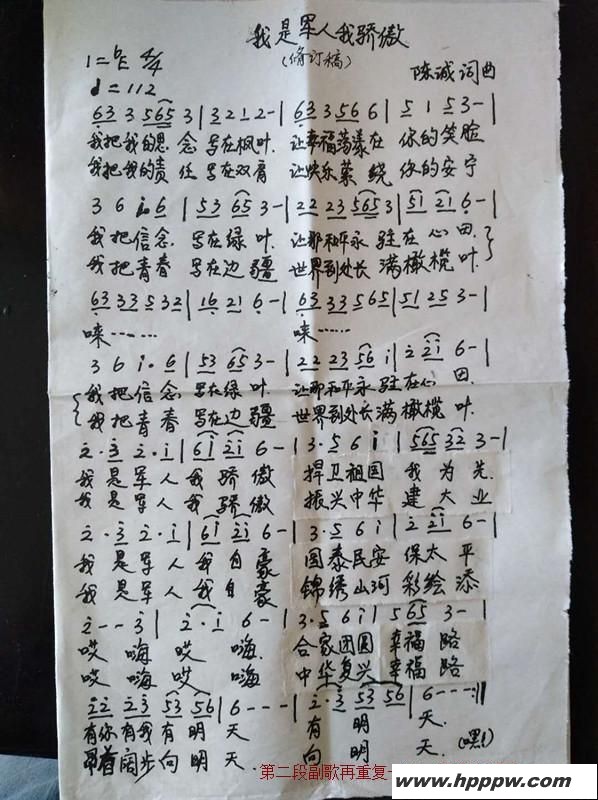 我是军人我骄傲
(修订稿)
1=bE 4/4
♩=112
陈诚词曲
63 3 565 3 | 3 2 1 2 - | 63 3 56 6 | 5 1 5 3 - |
我把我的思念 写在枫叶. 让幸福荡漾在 你的笑脸
我把我的责任 写在双肩 让快乐萦绕 你的安宁
3 6 i. 6 | 53 65 3 - | 22 23 565 3 | 51 21 6 - |
我把信念 写在绿叶. 让那和平永驻在心田.
我把青春 写在边疆 世界到处长满橄榄叶.
63 33 5 32 | 16 21 6 - | 63 33 5 65 | 51 25 3 - |
唻…… 唻……
3 6 i. 6 | 53 65 3 - | 22 23 56 i | 2 2i 6 - |
我把信念 写在绿叶 让那和平永驻在心田.
我把青春 写在边疆 世界到处长满橄榄叶.
2. 3 2. i | 6i 2i 6 - | 3. 5 6 i | 565 32 3 - |
我是军人我骄傲 捍卫祖国 我为先
我是军人我骄傲 振兴中华 建大业
2. 3 2. i | 6i 2i 6 - | 3. 5 6 i | 2 2i 6 - |
我是军人我自豪 国泰民安 保太平
我是军人我自豪 锦绣山河 彩绘添
2 - - 3 | 2. i 6 - | 3. 5 6 i | 5 65 3 - |
哎嗨哎嗨 合家团圆 幸福路
哎嗨哎嗨 中华复兴 幸福路
22 23 53 56 | 6 - - - | 2. 3 53 56 | 6 - - - :||
有你有我有明天 有明天.
阔步向明天 向明天. (嘿!)
第二段副歌再重复一
www.hpppw.com